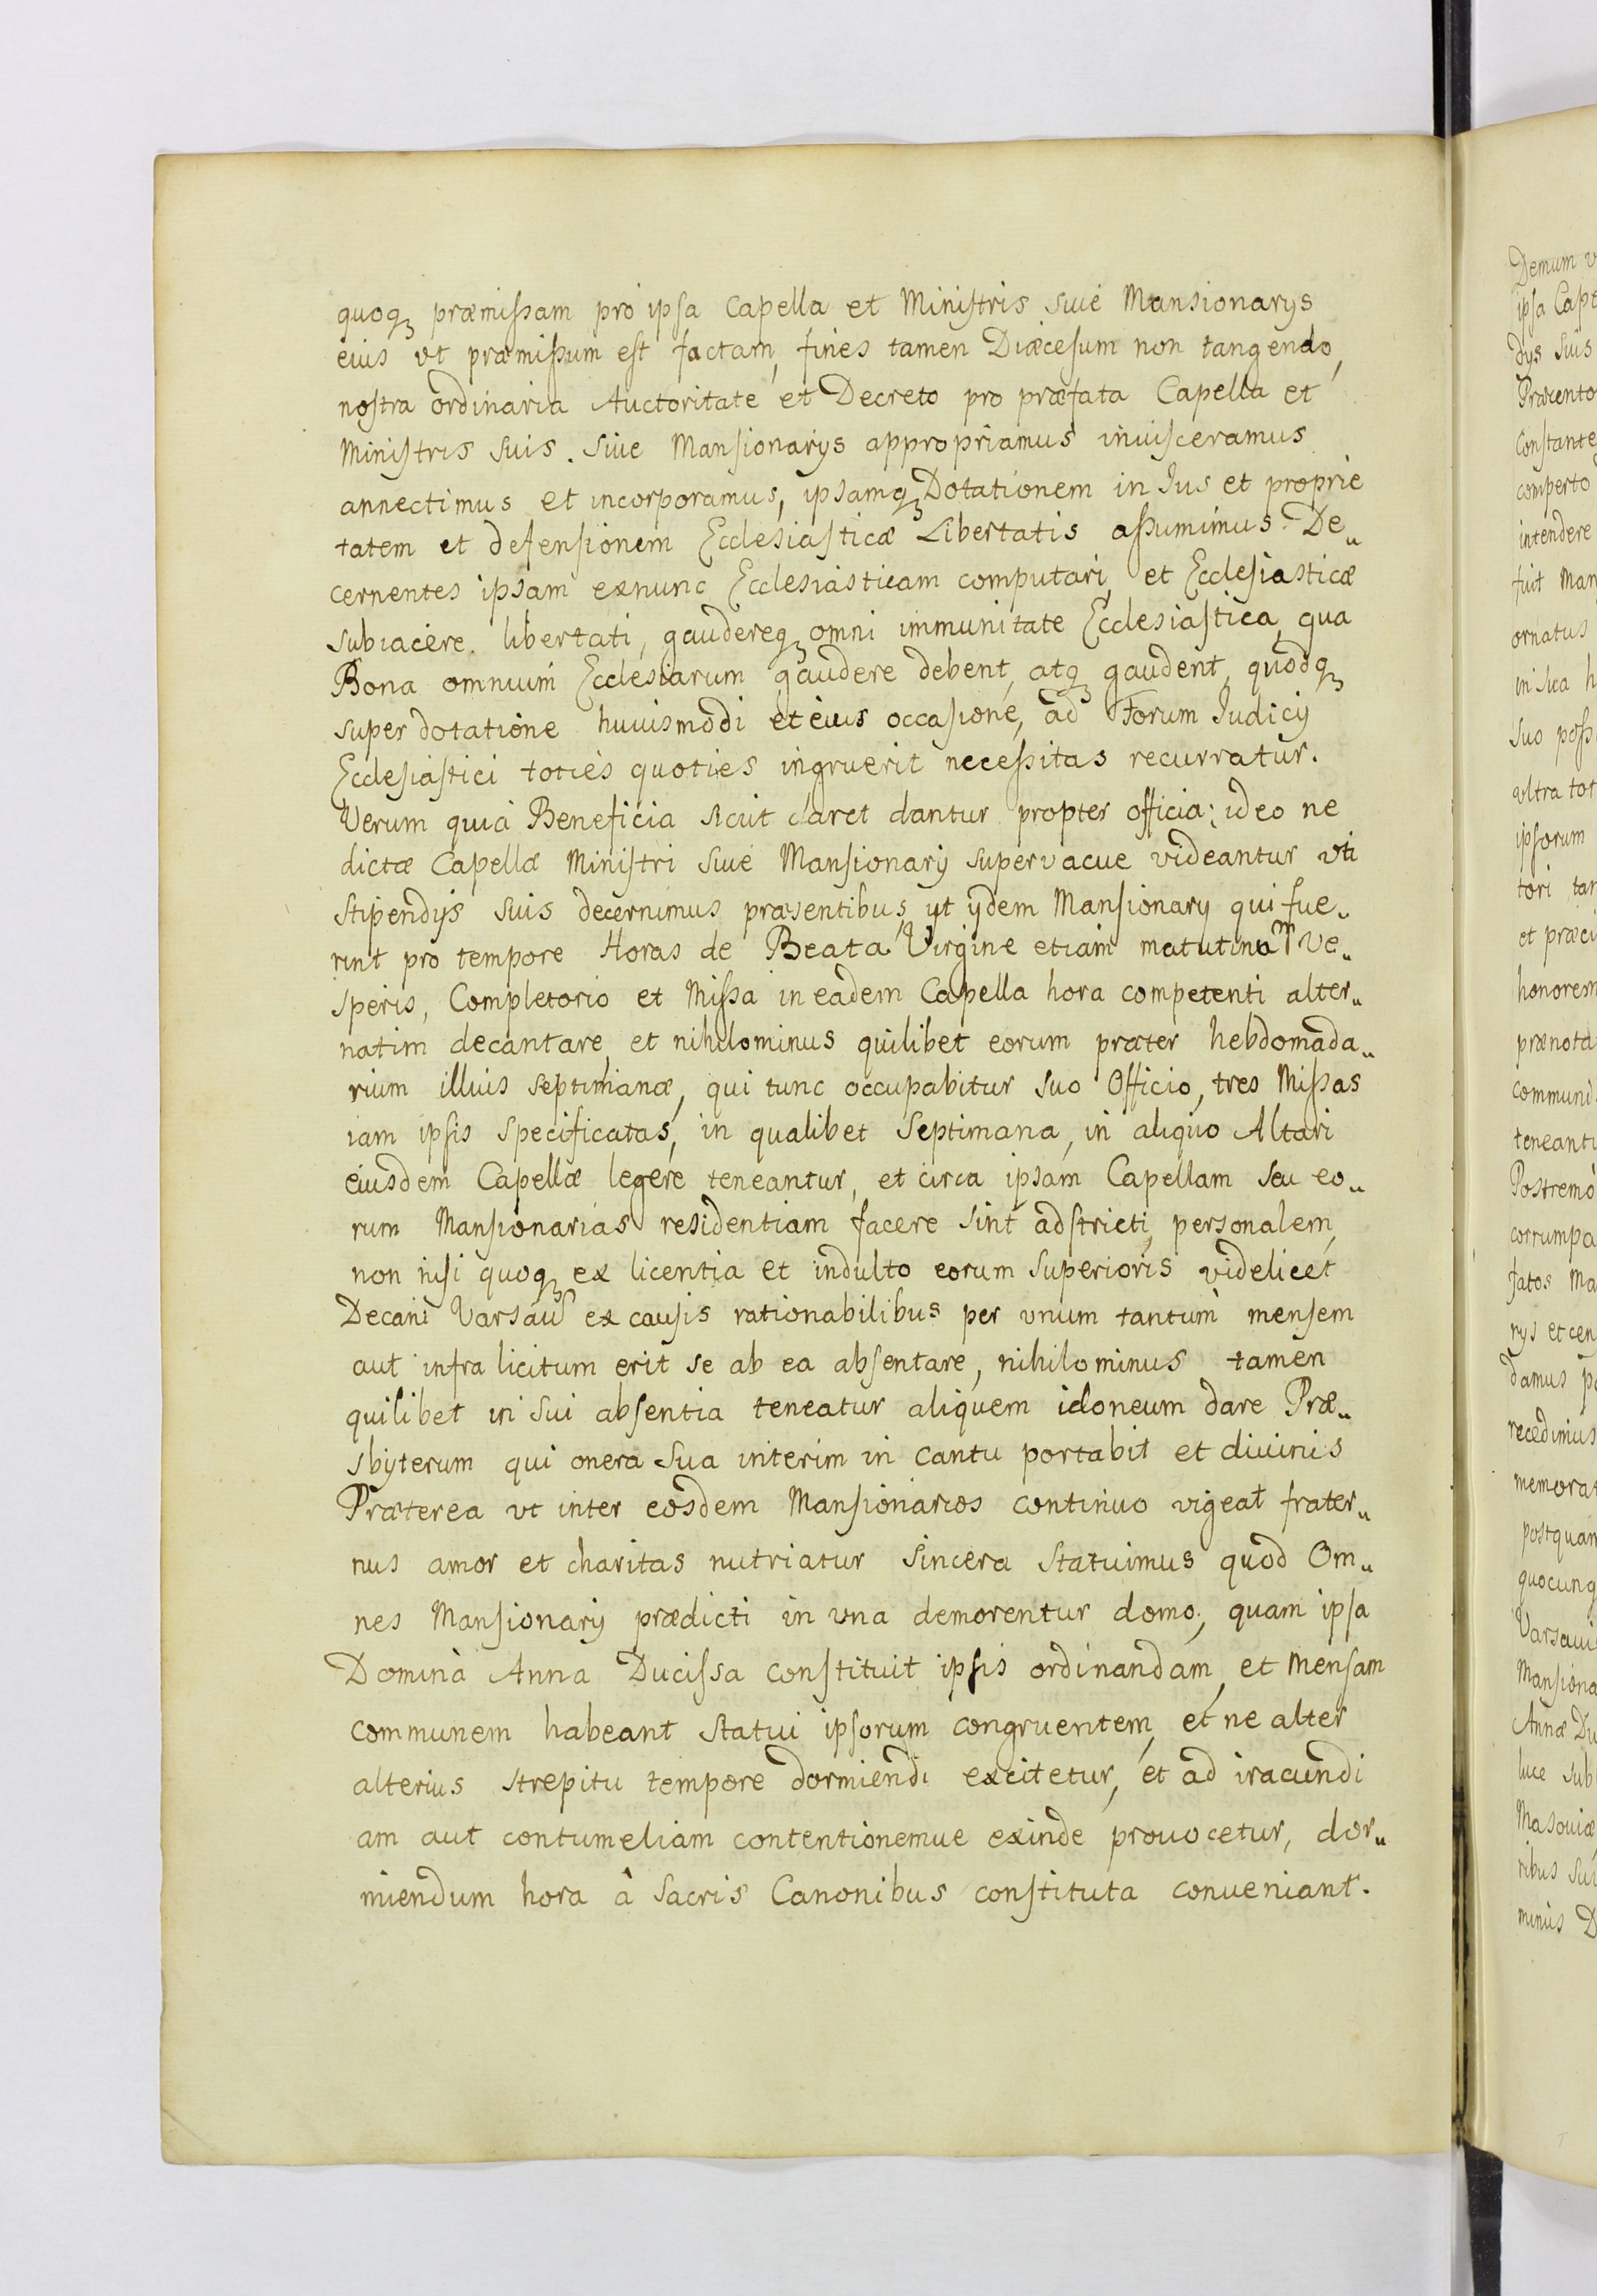 quoq₃ præmissam pro ipsa Capella et Ministris siue Mansionarys
eius vt præmissum est factam, fines tamen Diæcesum non tangendo,
nostra ordinaria Auctoritate et Decreto pro præfata Capella et
Ministris suis. siue Mansionarys appropriamus inuisceramus
annectimus et incorporamus, ipsamq₃ Dotationem in Jus et proprie
tatem et defensionem Ecclesiasticæ Libertatis assumimus De„
cernentes ipsam exnunc Ecclesiasticam computari, et Ecclesiasticæ
subiacere. libertati, gaudereq₃ omni immunitate Ecclesiastica, qua
Bona omnium Ecclesiarum gaudere debent, atq₃ gaudent, quodq₃
super dotatione huiusmodi et eius occasione, ad Forum Judicij
Ecclesiastici toties quoties ingruerit necessitas recurratur.
Verum quia Beneficia sicut claret dantur propter officia; ideo ne
dictæ Capellæ Ministri siue Mansionarij supervacue videantur vti
stipendijs suis decernimus præsentibus, vt ijdem Mansionarij qui fue„
rint pro tempore Horas de Beata Virgine etiam matutinam Ve„
speris, Completorio et Missa in eadem Capella hora competenti alter„
natim decantare, et nihilominus quilibet eorum præter hebdomada„
rium illius septimanæ, qui tunc occupabitur suo Officio, tres Missas
iam ipsis specificatas, in qualibet Septimana, in aliquo Altari
eiusdem Capellæ legere teneantur, et circa ipsam Capellam seu eo„
rum Mansionarias residentiam facere sint adstricti, personalem,
non nisi quoq₃ ex licentia et indulto eorum superioris videlicet
Decani Varsau ex causis rationabilibus per vnum tantum mensem
aut infra licitum erit se ab ea absentare, nihilominus tamen
quilibet in sui absentia teneatur aliquem idoneum dare Præ„
sbyterum qui onera sua interim in cantu portabit et diuinis
Præterea vt inter eosdem Mansionarios continuo vigeat frater„
nus amor et charitas nutriatur sincera statuimus quod Om„
nes Mansionarij prædicti in vna demorentur domo, quam ipsa
Domina Anna Ducissa constituit ipsis ordinandam, et mensam
communem habeant statui ipsorum congruentem, et ne alter
alterius strepitu tempore dormiendi excitetur, et ad iracundi
am aut contumeliam contentionemue exinde prouocetur, dor„
miendum hora â sacris Canonibus constituta conueniant.
Demum
ipsa
dys suis
Constante
comperto
intendere
fuit
ornatus
in sua
suo
vltra
ipsorum
tori
et
honorem
Postremo
rys et
damus
recedimus
postquam
Annæ
luce
Masouiæ
ribus
minus